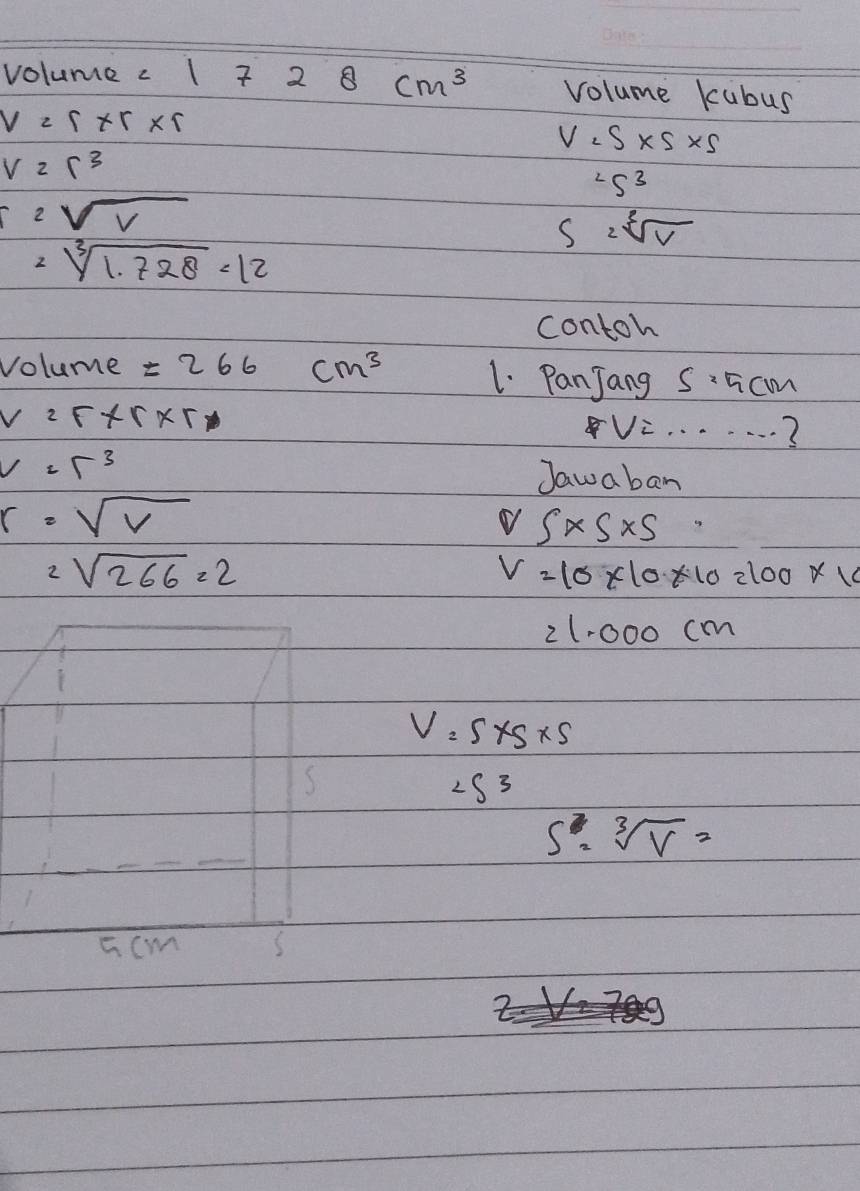 Volume = 1 7 2 8 cm³
V = r × r × r
V = r³
r = √V
= ³√1.728 = 12
Volume = 266 cm³
V = r × r × r
V = r³
r = √V
= √266 = 2
5 cm
S
S
Volume kubus
V = S × S × S
= S³
S = ³√V
Contoh
1. Panjang S = 5 cm
V = ........?
Jawaban
V S × S × S =
V = 10 × 10 × 10 = 100 × 10
= 1.000 cm
V = S × S × S
= S³
S = ³√V =